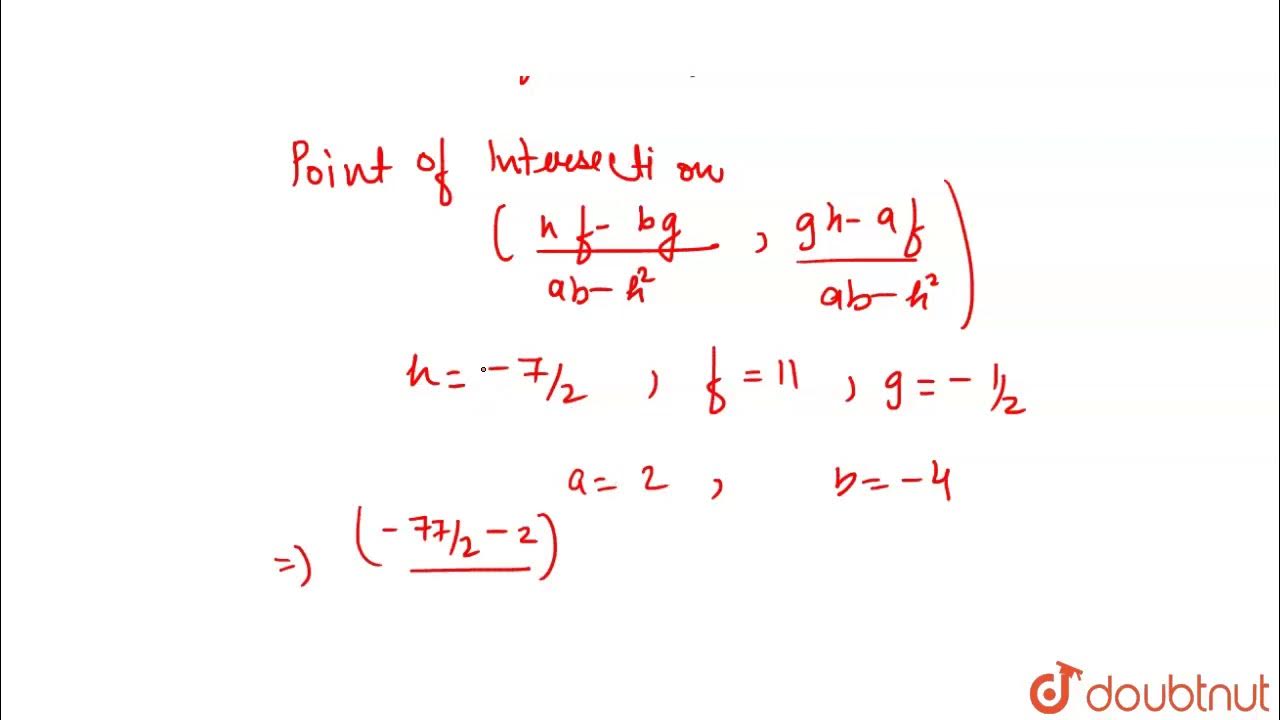 Point of Intersection
( hf - bg / ab - h² , gh - af / ab - h² )
h = -7/2 , f = 11 , g = -1/2
a = 2 , b = -4
=> ( -77/2 - 2 )
doubtnut